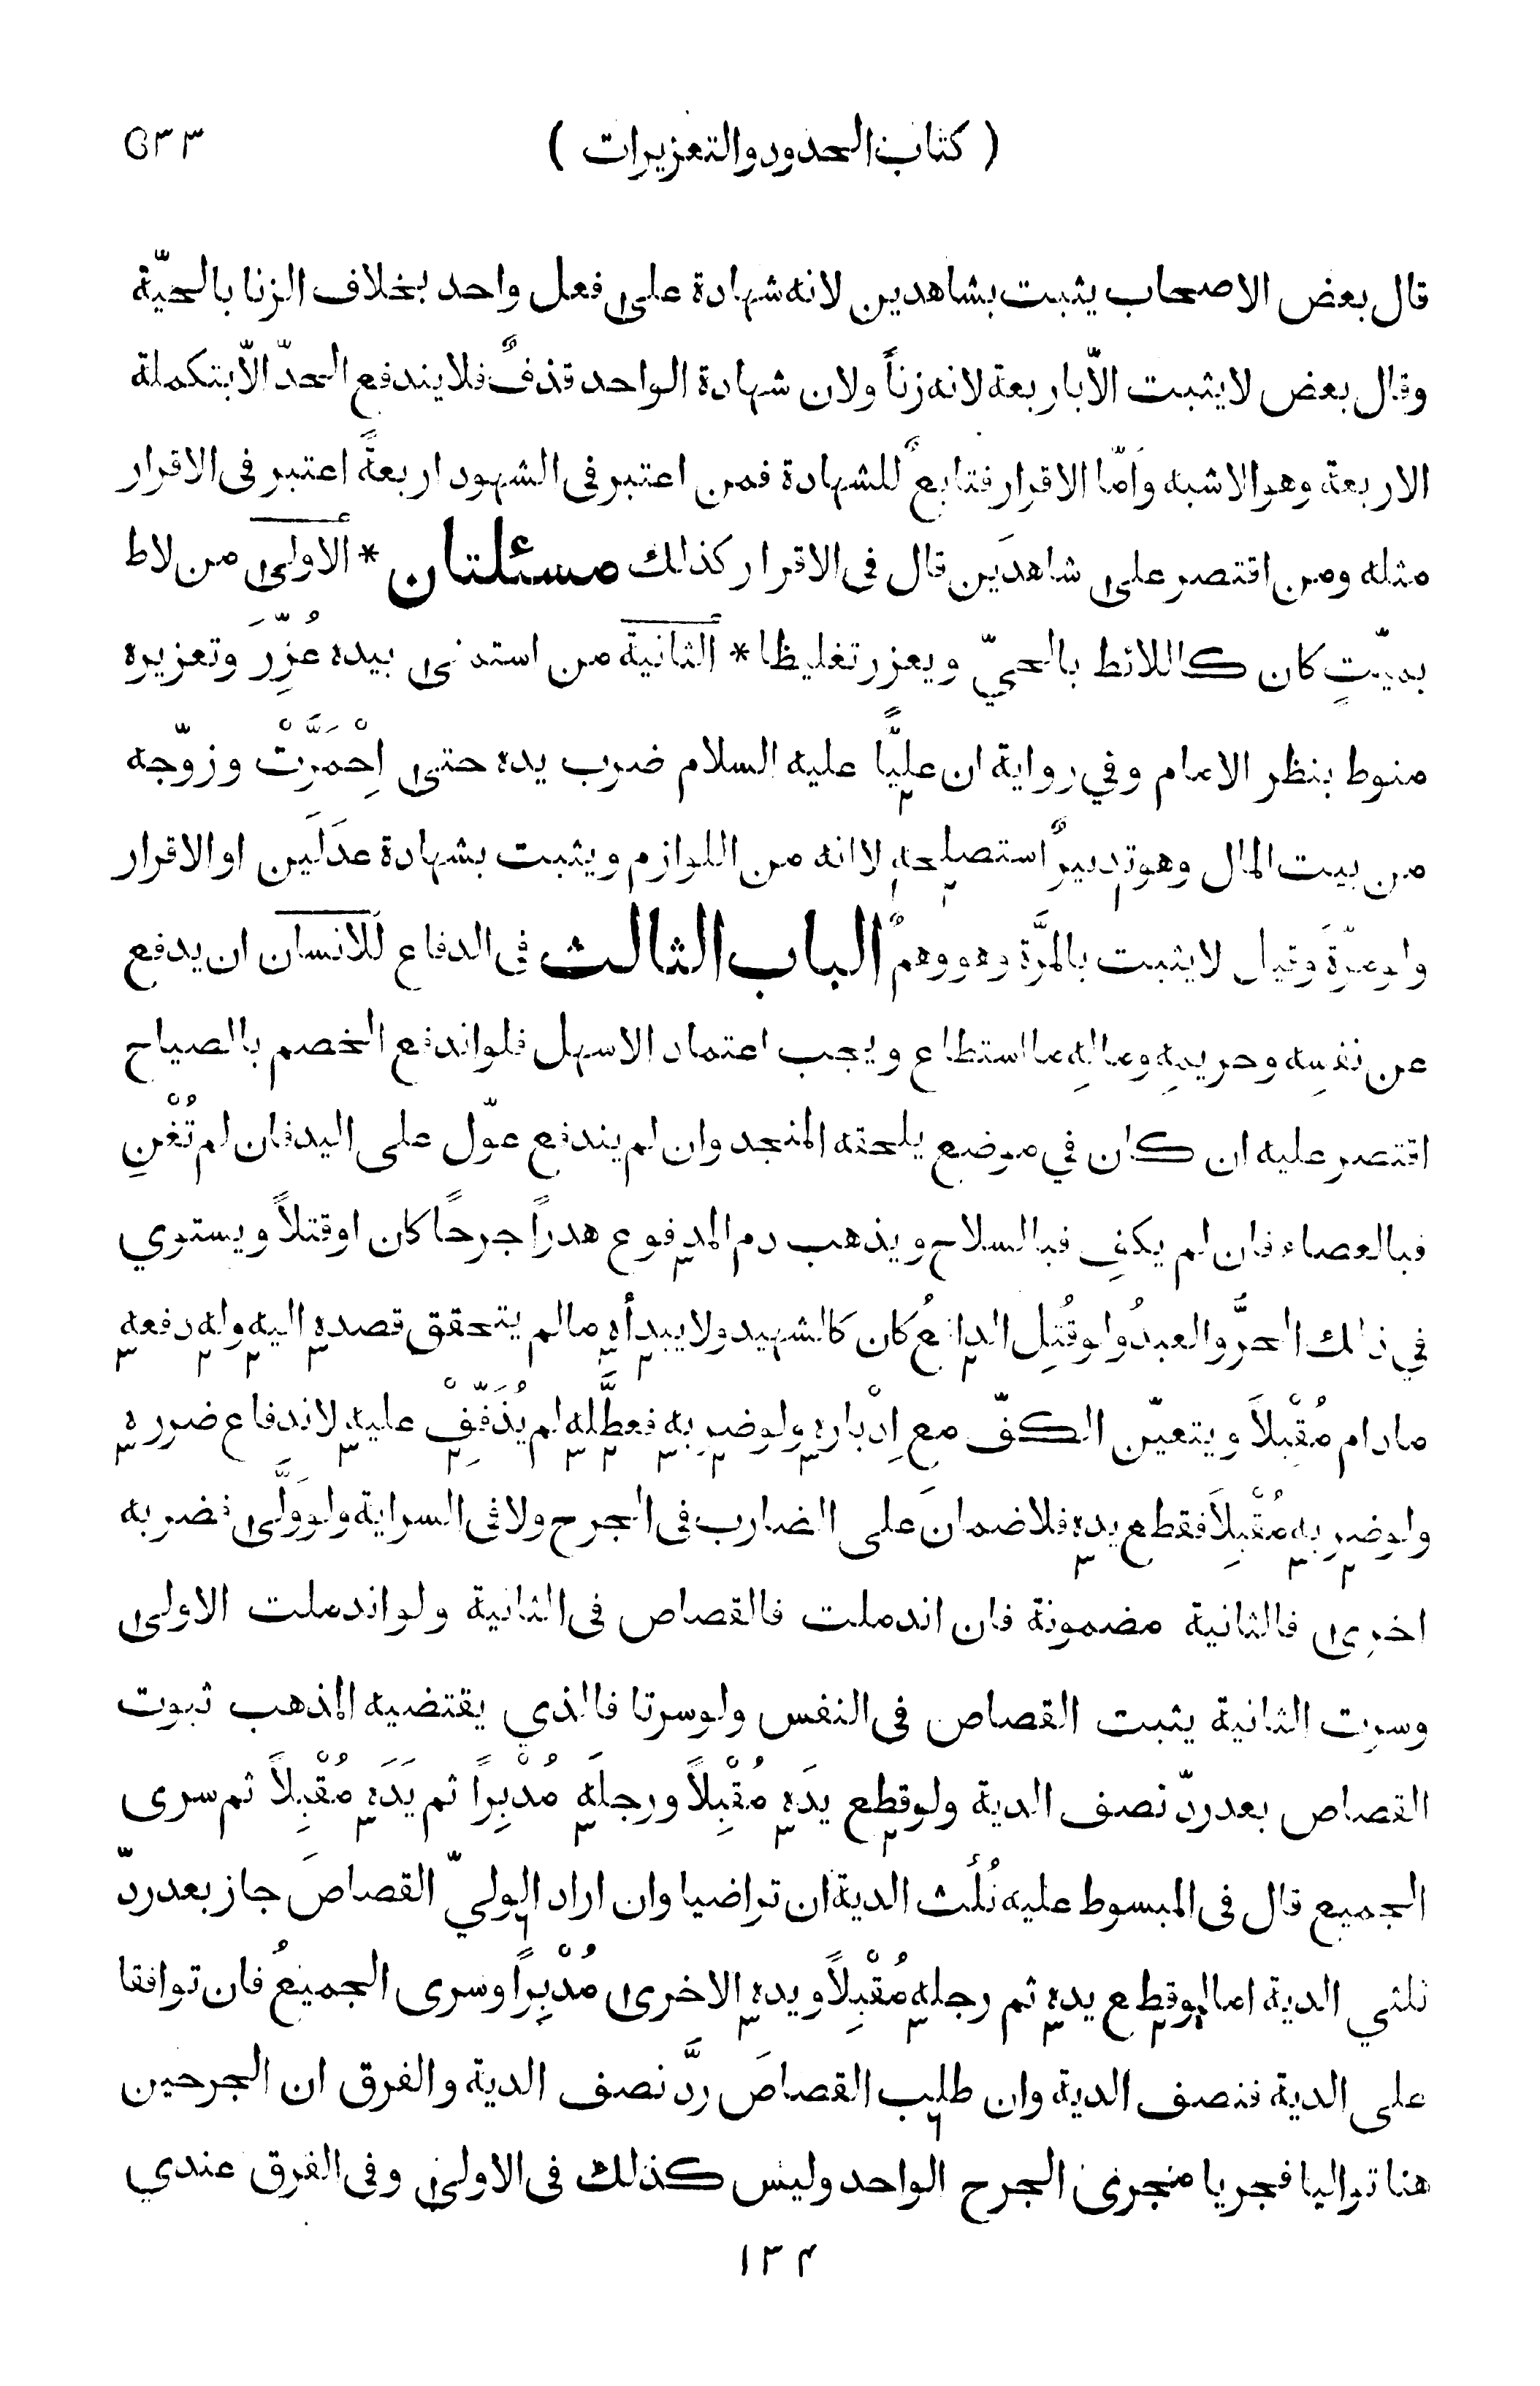 ( كتاب الحدود والتعزيرات ) ٥٣٣
قال بعض الاصحاب يثبت بشاهدين لانه شهادة على فعل واحد بخلاف الزنا بالحيّة
وقال بعض لا يثبت الّا باربعة لانه زناً ولان شهادة الواحد قذفٌ فلا يندفع الحدّ الّا بتكملة
الاربعة وهو الاشبه وَامّا الاقرار فتابعٌ للشهادة فمن اعتبر فى الشهود اربعةً اعتبر فى الاقرار
مثله ومن اقتصر على شاهدَين قال فى الاقرار كذلك مسئلتان * ألاولى من لاط
بميّتٍ كان كاللائط بالحيّ ويعزر تغليظا * ألثانية من استمنى بيده عُزِّرَ وتعزيره
منوط بنظر الامام وفي رواية ان عليًّا عليه السلام ضرب يده حتى اِحْمَرَّتْ وزوّجه
من بيت المال وهو تدبيرٌ استصلحه لا انه من اللوازم ويثبت بشهادة عدَلَين او الاقرار
ولو مرّةً وقيل لا يثبت بالمرَّة وهو وهمٌ الباب الثالث فى الدفاع للانسان ان يدفع
عن نفسِه وحريمِه ومالِه ما استطاع ويجب اعتماد الاسهل فلو اندفع الخصم بالصياح
اقتصر عليه ان كان في موضع يلحقه المنجد وان لم يندفع عوّل على اليد فان لم تُغْنِ
فبالعصاء فان لم يكفِ فبالسلاح ويذهب دم المدفوع هدرًا جرحًا كان او قتلاً ويستوي
في ذلك الحرُّ والعبدُ ولو قُتِل الدافعُ كان كالشهيد ولا يبدأه ما لم يتحقق قصده اليه وله دفعه
مادام مُقْبلاً ويتعيّن الكفّ مع اِدْباره ولو ضربه فعطَّله لم يُذَفِّفْ عليه لاندفاع ضرره
ولو ضربه مُقْبِلاً فقطع يده فلا ضمانَ على الضارب فى الجرح ولا فى السراية ولو ولَّى فضربه
اخرى فالثانية مضمونة فان اندملت فالقصاص فى الثانية ولو اندملت الاولى
وسرت الثانية يثبت القصاص فى النفس ولو سرتا فالذي يقتضيه المذهب ثبوت
القصاص بعد ردّ نصف الدية ولو قطع يدَه مُقْبِلاً ورجلَه مُدْبِرًا ثم يَدَه مُقْبِلاً ثم سرى
الجميع قال فى المبسوط عليه ثُلُث الدية ان تراضيا وان اراد الوليّ القصاصَ جاز بعد ردّ
ثلثي الدية اما لو قطع يده ثم رجله مُقْبِلاً ويده الاخرى مُدْبِرًا وسرى الجميعُ فان توافقا
على الدية فنصف الدية وان طلب القصاصَ ردَّ نصف الدية والفرق ان الجرحين
هنا تواليا فجريا مجرى الجرح الواحد وليس كذلك فى الاولى وفى الفرق عندي
١٣٤